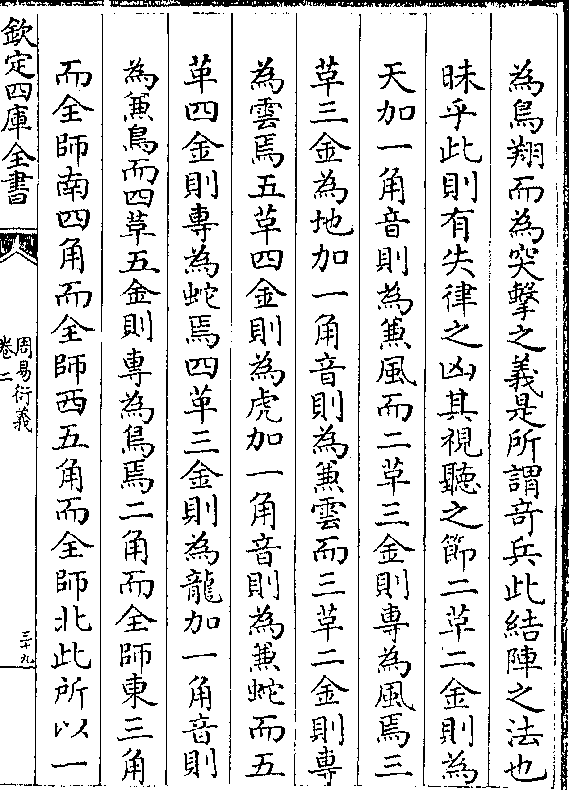 為鳥翔而為突擊之義是所謂奇兵此結陣之法也
昧乎此則有失律之凶其視聽之節二革二金則為
天加一角音則為兼風而二革三金則專為風焉三
革三金為地加一角音則為兼雲而三革二金則專
為雲焉五革四金則為虎加一角音則為兼蛇而五
革四金則專為蛇焉四革三金則為龍加一角音則
為兼鳥而四革五金則專為鳥焉二角而全師東三角
而全師南四角而全師西五角而全師北此所以一
欽定四庫全書
周易衍義
卷二
三十九